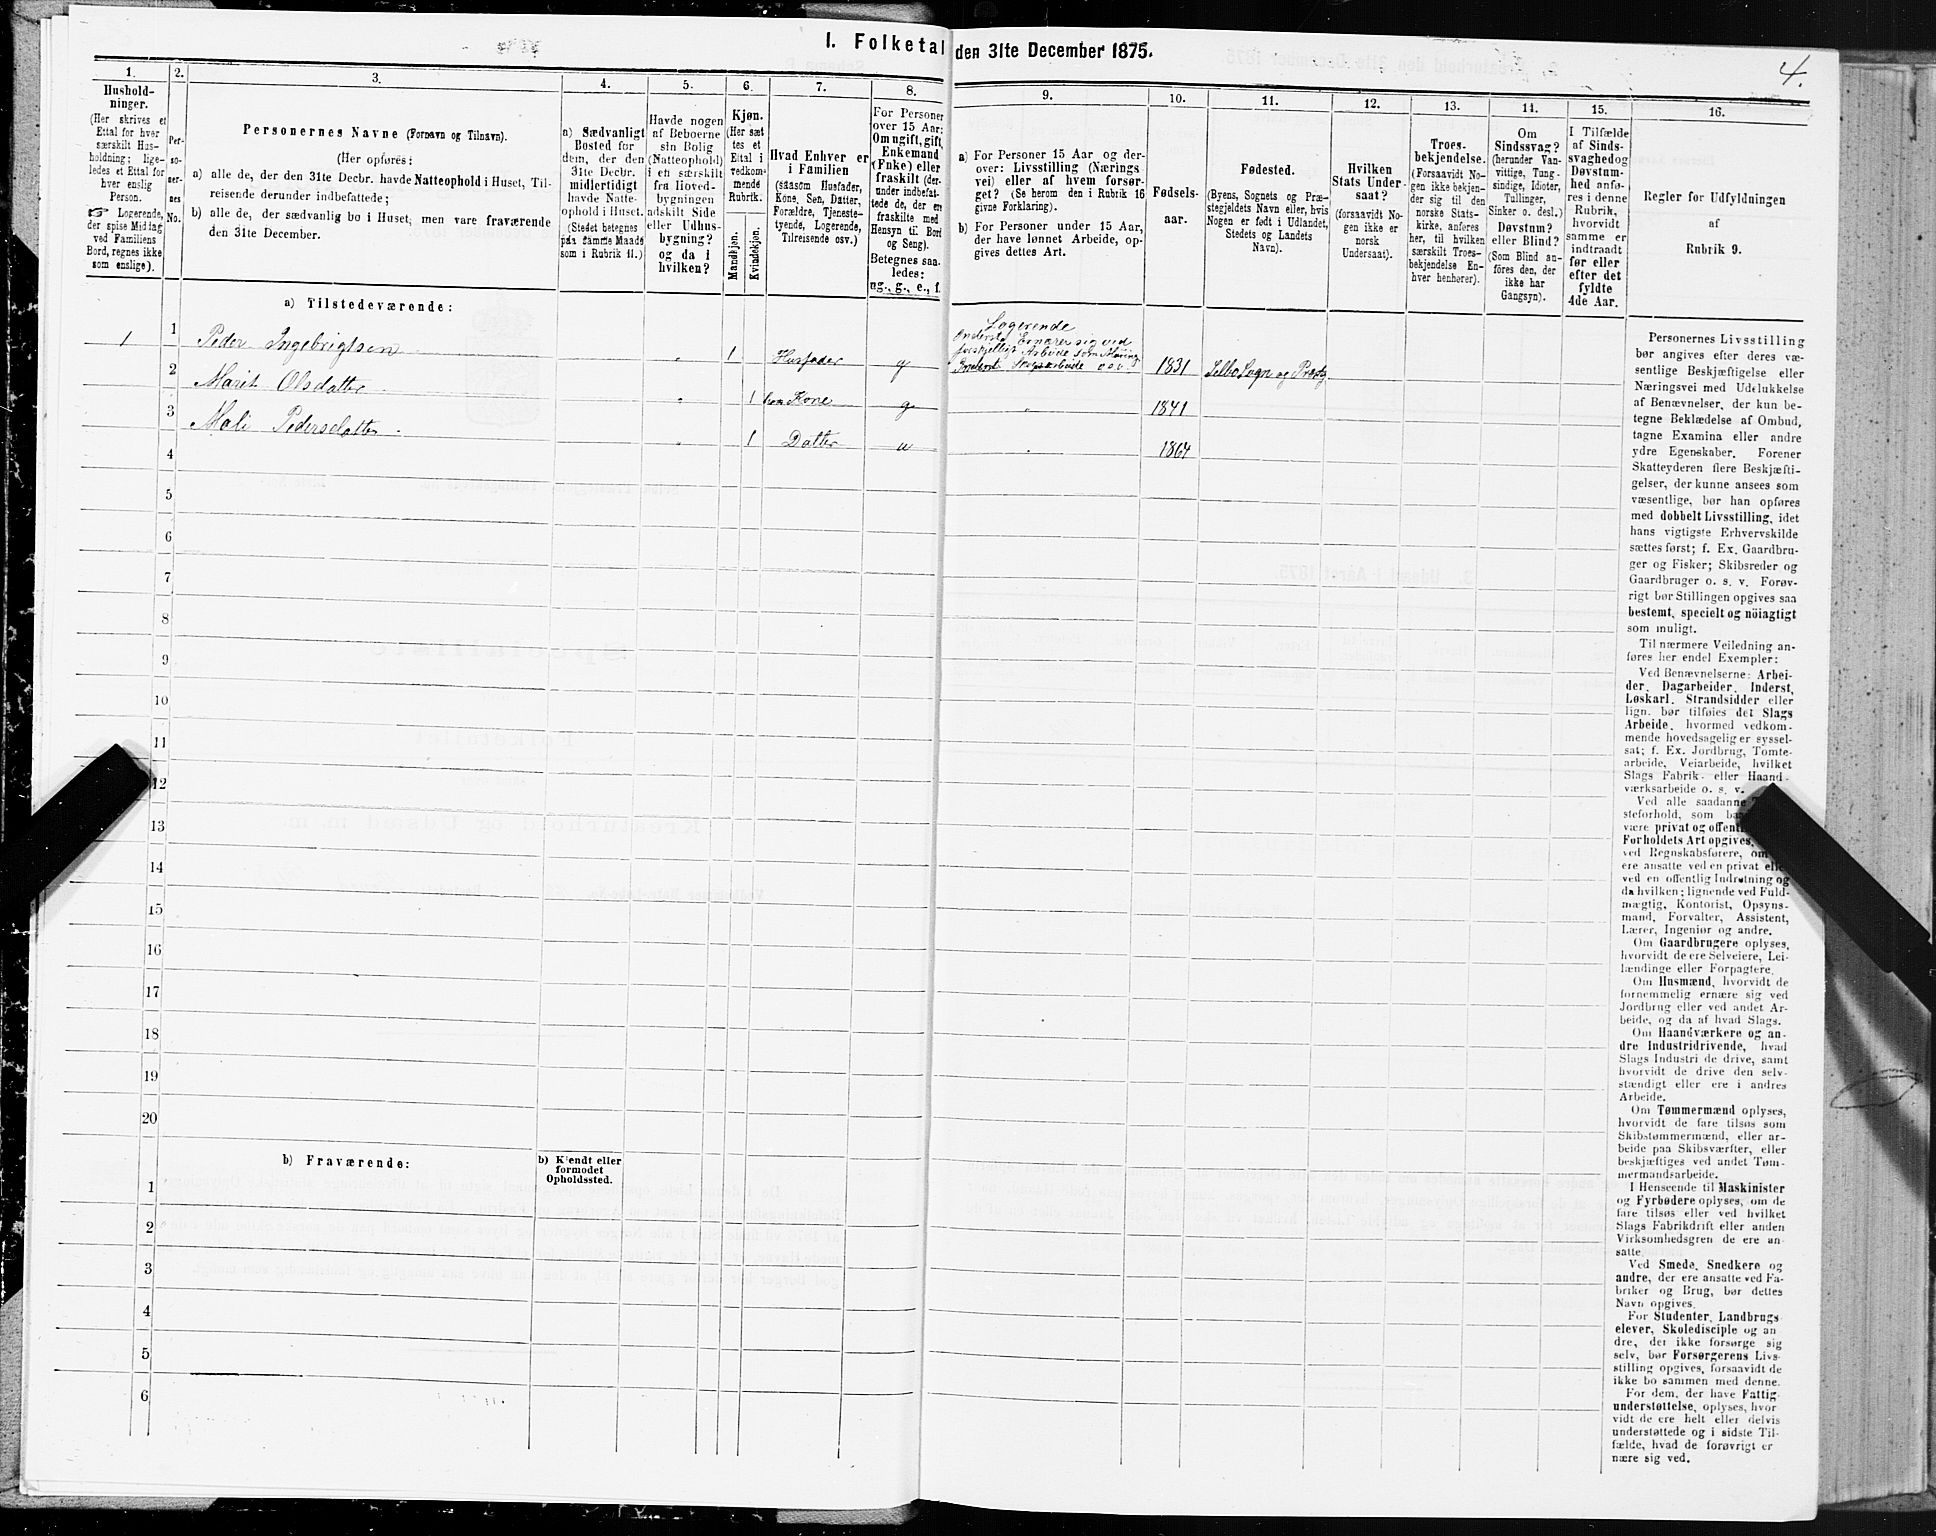 I. Folketal den 31te December 1875.
4.
1.
Hushold-
ninger.
(Her skrives et
Ettal for hver
særskilt Hus-
holdning; lige-
ledes et Ettal for
hver enslig
Person.
☞ Logerende,
der spise Middag
ved Familiens
Bord, regnes ikke
som enslige).
2.
Per-
so-
ner-
nes
No.
3.
Personernes Navne (Fornavn og Tilnavn).
(Her opføres:
a) alle de, der den 31te Decbr. havde Natteophold i Huset, Til-
reisende derunder indbefattede;
b) alle de, der sædvanlig bo i Huset, men vare fraværende
den 31te December.
4.
a) Sædvanligt
Bosted for
dem, der den
31te Decbr.
midlertidigt
havde Natte-
ophold i Huset.
(Stedet betegnes
paa samme Maade
som i Rubrik 11.)
5.
Havde nogen
af Beboerne
sin Bolig
(Natteophold)
i en særskilt
fra Hoved-
bygningen
adskilt Side
eller Udhus-
bygning?
og da i
hvilken?
6.
Kjøn.
(Her sæt-
tes et
Ettal i
vedkom-
mende
Rubrik.
Mandkjøn.
Kvindekjøn.
7.
Hvad Enhver er
i Familien
(saasom Husfader,
Kone, Søn, Datter,
Forældre, Tjeneste-
tyende, Logerende,
Tilreisende osv.)
8.
For Personer
over 15 Aar:
Om ugift, gift,
Enkemand
(Enke) eller
fraskilt (der-
under indbefat-
tede de, der ere
fraskilte med
Hensyn til Bord
og Seng).
Betegnes saa-
ledes:
ug., g., e., f.
9.
a) For Personer 15 Aar og der-
over: Livsstilling (Nærings-
vei) eller af hvem forsør-
get? (Se herom den i Rubrik 16
givne Forklaring).
b) For Personer under 15 Aar,
der have lønnet Arbeide, op-
gives dettes Art.
10.
Fødsels-
aar.
11.
Fødested.
(Byens, Sognets og Præ-
stegjeldets Navn eller, hvis
Nogen er født i Udlandet,
Stedets og Landets
Navn).
12.
Hvilken
Stats Under-
saat?
(forsaavidt No-
gen ikke er
norsk
Undersaat).
13.
Troes-
bekjendelse.
(Forsaavidt No-
gen ikke bekjen-
der sig til den
norske Stats-
kirke, anføres
her, til hvilken
særskilt Troes-
bekjendelse En-
hver henhører).
14.
Om
Sindssvag?
(herunder Van-
vittige, Tung-
sindige, Idioter,
Tullinger,
Sinker o. desl.)
Døvstum?
eller Blind?
(Som Blind an-
føres den, der
ikke har
Gangsyn).
15.
I Tilfælde
af Sinds-
svaghedog
Døvstum-
hed anfø-
res i denne
Rubrik,
hvorvidt
samme er
indtraadt
før eller
efter det
fyldte
4de Aar.
16.
Regler for Udfyldningen
af
Rubrik 9.
a) Tilstedeværende:
1 1 Peder Ingebrigtsen 1 Husfader g
Logerende
Inderst Ernærer sig ved
forskjelligt Arbeide som
1831 Selbo Sogn og Præstg
2 Marit Olsdatter 1 hans Kone g 1841
3 Mali Pedersdatter 1 Datter u 1864
4
5
6
7
8
9
10
11
12
13
14
15
16
17
18
19
20
b) Fraværende:
b) Kjendt eller
formodet
Opholdssted.
1
2
3
4
5
6
Personernes Livsstilling
bør angives efter deres væ-
sentlige Beskjæftigelse eller
Næringsvei med Udelukkelse
af Benævnelser, der kun be-
tegne Beklædelse af Ombud,
tagne Examina eller andre
ydre Egenskaber. Forener
Skatteyderen flere Beskjæfti-
gelser, der kunne ansees som
væsentlige, bør han opføres
med dobbelt Livsstilling, idet
hans vigtigste Erhvervskilde
sættes først; f. Ex. Gaardbru-
ger og Fisker; Skibsreder og
Gaardbruger o. s. v. Forøv-
rigt bør Stillingen opgives saa
bestemt, specielt og nöiagtigt
som muligt.
Til nærmere Veiledning an-
føres her endel Exempler:
Ved Benævnelserne: Arbei-
der, Dagarbeider, Inderst,
Løskarl, Strandsidder eller
lign. bør tilføies det Slags
Arbeide, hvormed vedkom-
mende hovedsagelig er syssel-
sat; f. Ex. Jordbrug, Tomte-
arbeide, Veiarbeide, hvilket
Slags Fabrik- eller Haand-
værksarbeide o. s. v.
Ved alle saadanne
steforhold, som
være privat og offent
Forholdets Art opgives,
ved Regnskabsførere, om
ere ansatte ved en privat eller
ved en offentlig Indretning og
da hvilken; lignende ved Fuld-
mægtig, Kontorist, Opsyns-
mand, Forvalter, Assistent,
Lærer, Ingeniør og andre.
Om Gaardbrugere oplyses,
hvorvidt de ere Selveiere, Lei-
lændinge eller Forpagtere.
Om Husmænd, hvorvidt de
fornemmelig ernære sig ved
Jordbrug eller ved andet Ar-
beide, og da af hvad Slags.
Om Haandværkere og an-
dre Industridrivende, hvad
Slags Industri de drive, samt
hvorvidt de drive den selv-
stændigt eller ere i andres
Arbeide.
Om Tømmermænd oplyses,
hvorvidt de fare tilsøs som
Skibstømmermænd, eller ar-
beide paa Skibsværfter, eller
beskjæftiges ved andet Tøm-
mermandsarbeide.
I Henseende til Maskinister
og Fyrbødere oplyses, om de
fare tilsøs eller ved hvilket
Slags Fabrikdrift eller anden
Virksomhedsgren de ere an-
satte.
Ved Smede, Snedkere og
andre, der ere ansatte ved Fa-
briker og Brug, bør dettes
Navn opgives.
For Studenter, Landbrugs-
elever, Skoledisciple og an
dre, der ikke forsørge sig
selv, bør Forsørgerens Livs-
stilling opgives, forsaavidt de
ikke bo sammen med denne.
For dem, der have Fattig-
understøttelse, oplyses, hvor-
vidt de ere helt eller delvis
understøttede og i sidste Til-
fælde, hvad de forøvrigt er
nære sig ved.